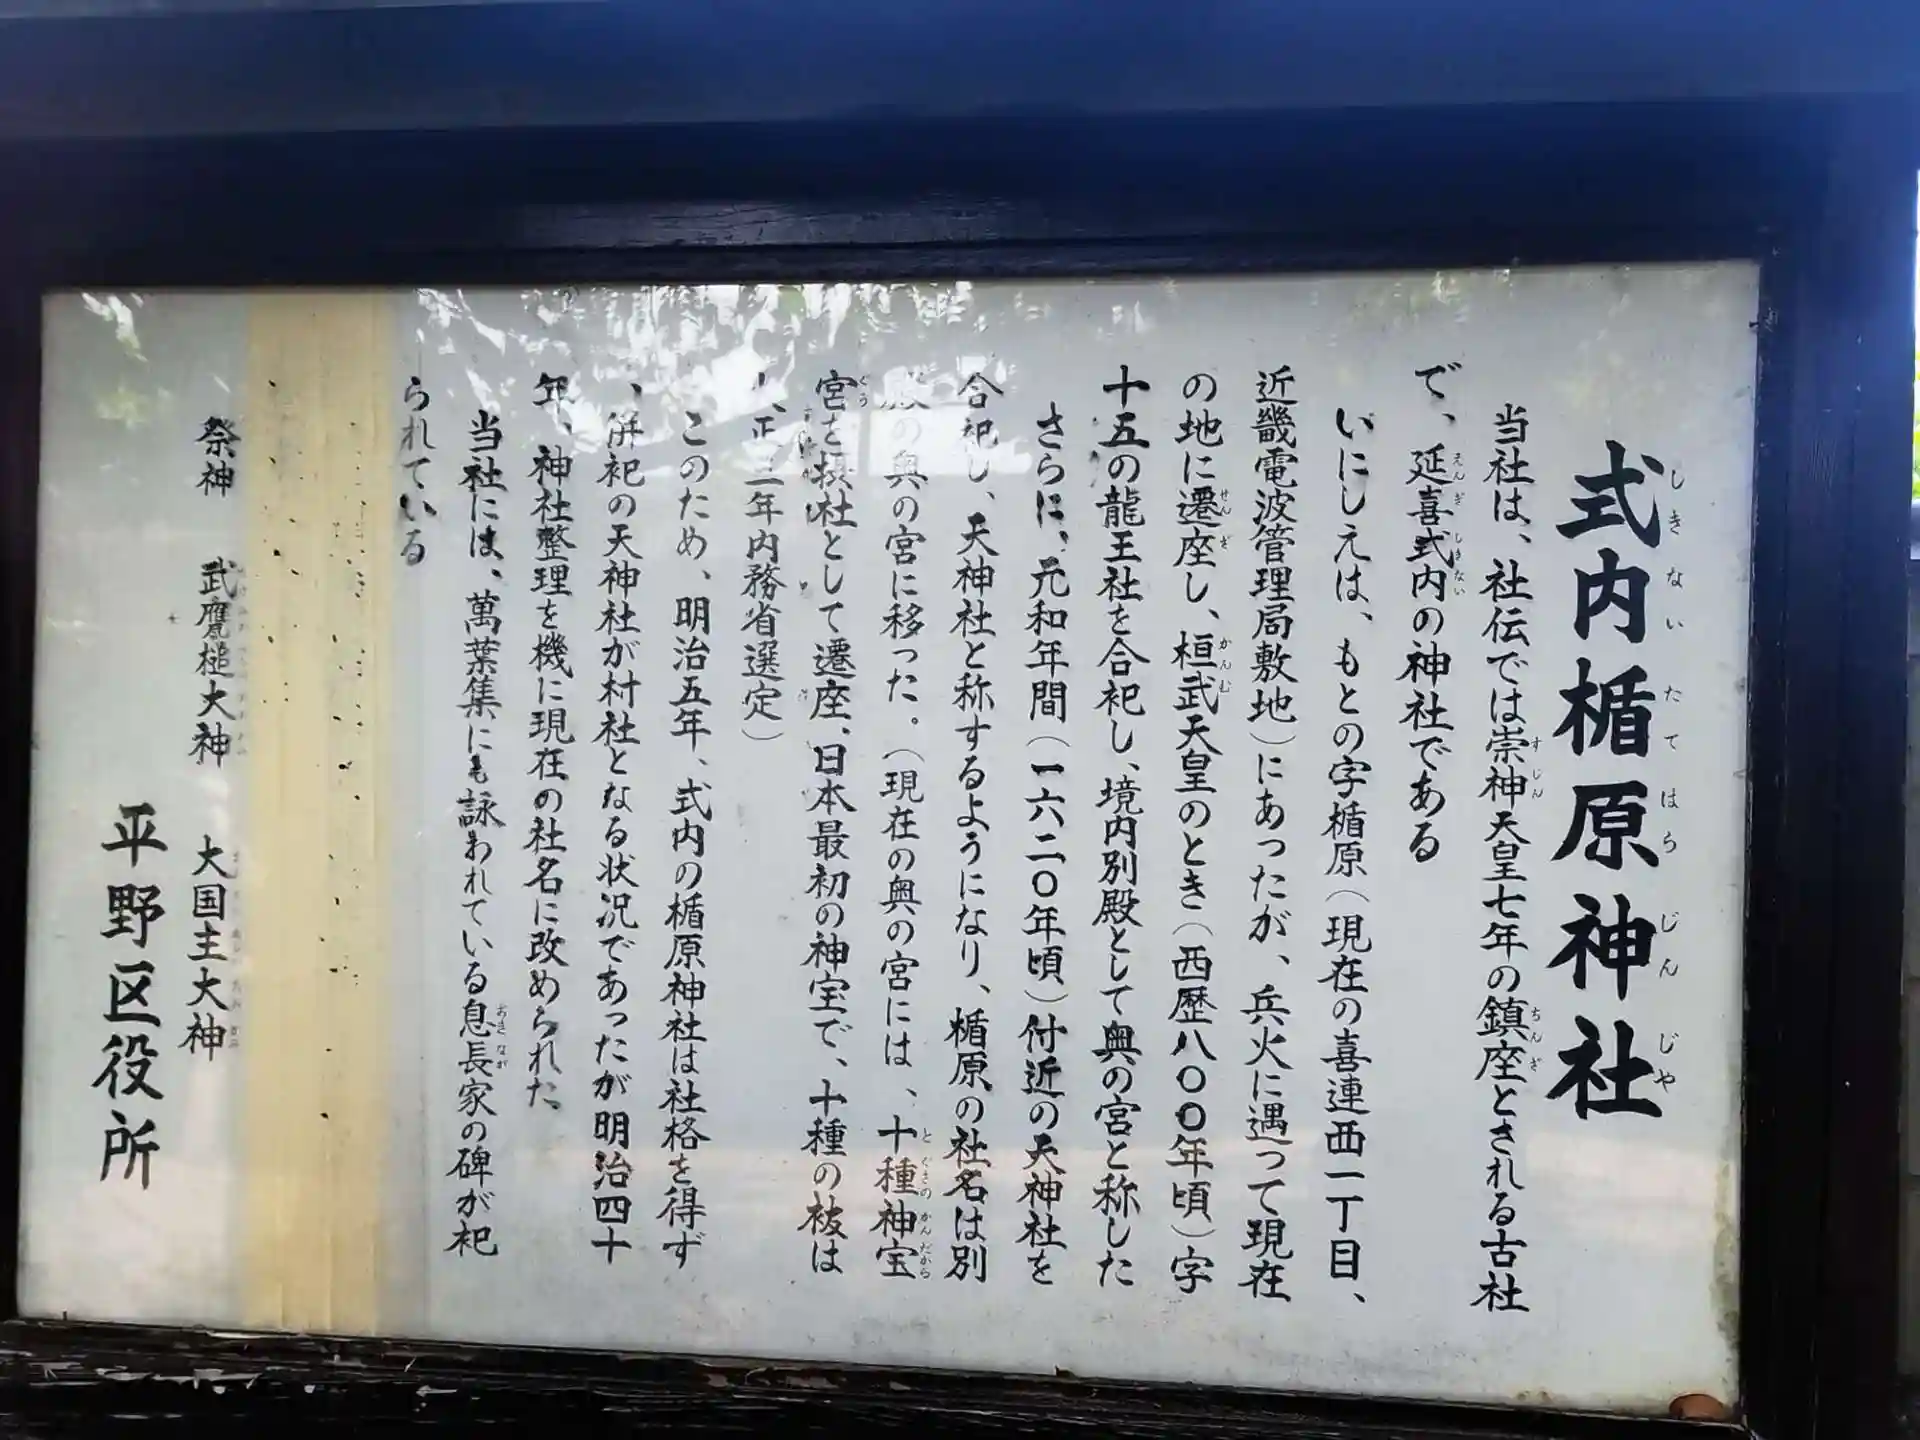 式内楯原神社
しきないたてはらじんじゃ
当社は、社伝では崇神天皇七年の鎮座とされる古社
で、延喜式内の神社である
いにしえは、もとの字楯原（現在の喜連西一丁目、
近畿電波管理局敷地）にあったが、兵火に遇って現在
の地に遷座し、桓武天皇のとき（西歴八〇〇年頃）字
十五の龍王社を合祀し、境内別殿として奥の宮と称した
さらに、元和年間（一六二〇年頃）付近の天神社を
合祀し、天神社と称するようになり、楯原の社名は別
殿の奥の宮に移った。（現在の奥の宮には、十種神宝
宮を摂社として遷座、日本最初の神宝で、十種の祓は
正三年内務省選定）
このため、明治五年、式内の楯原神社は社格を得ず
、併祀の天神社が村社となる状況であったが明治四十
年、神社整理を機に現在の社名に改められた
当社には、萬葉集にも詠われている息長家の碑が祀
られている
祭神 武甕槌大神 大国主大神
平野区役所